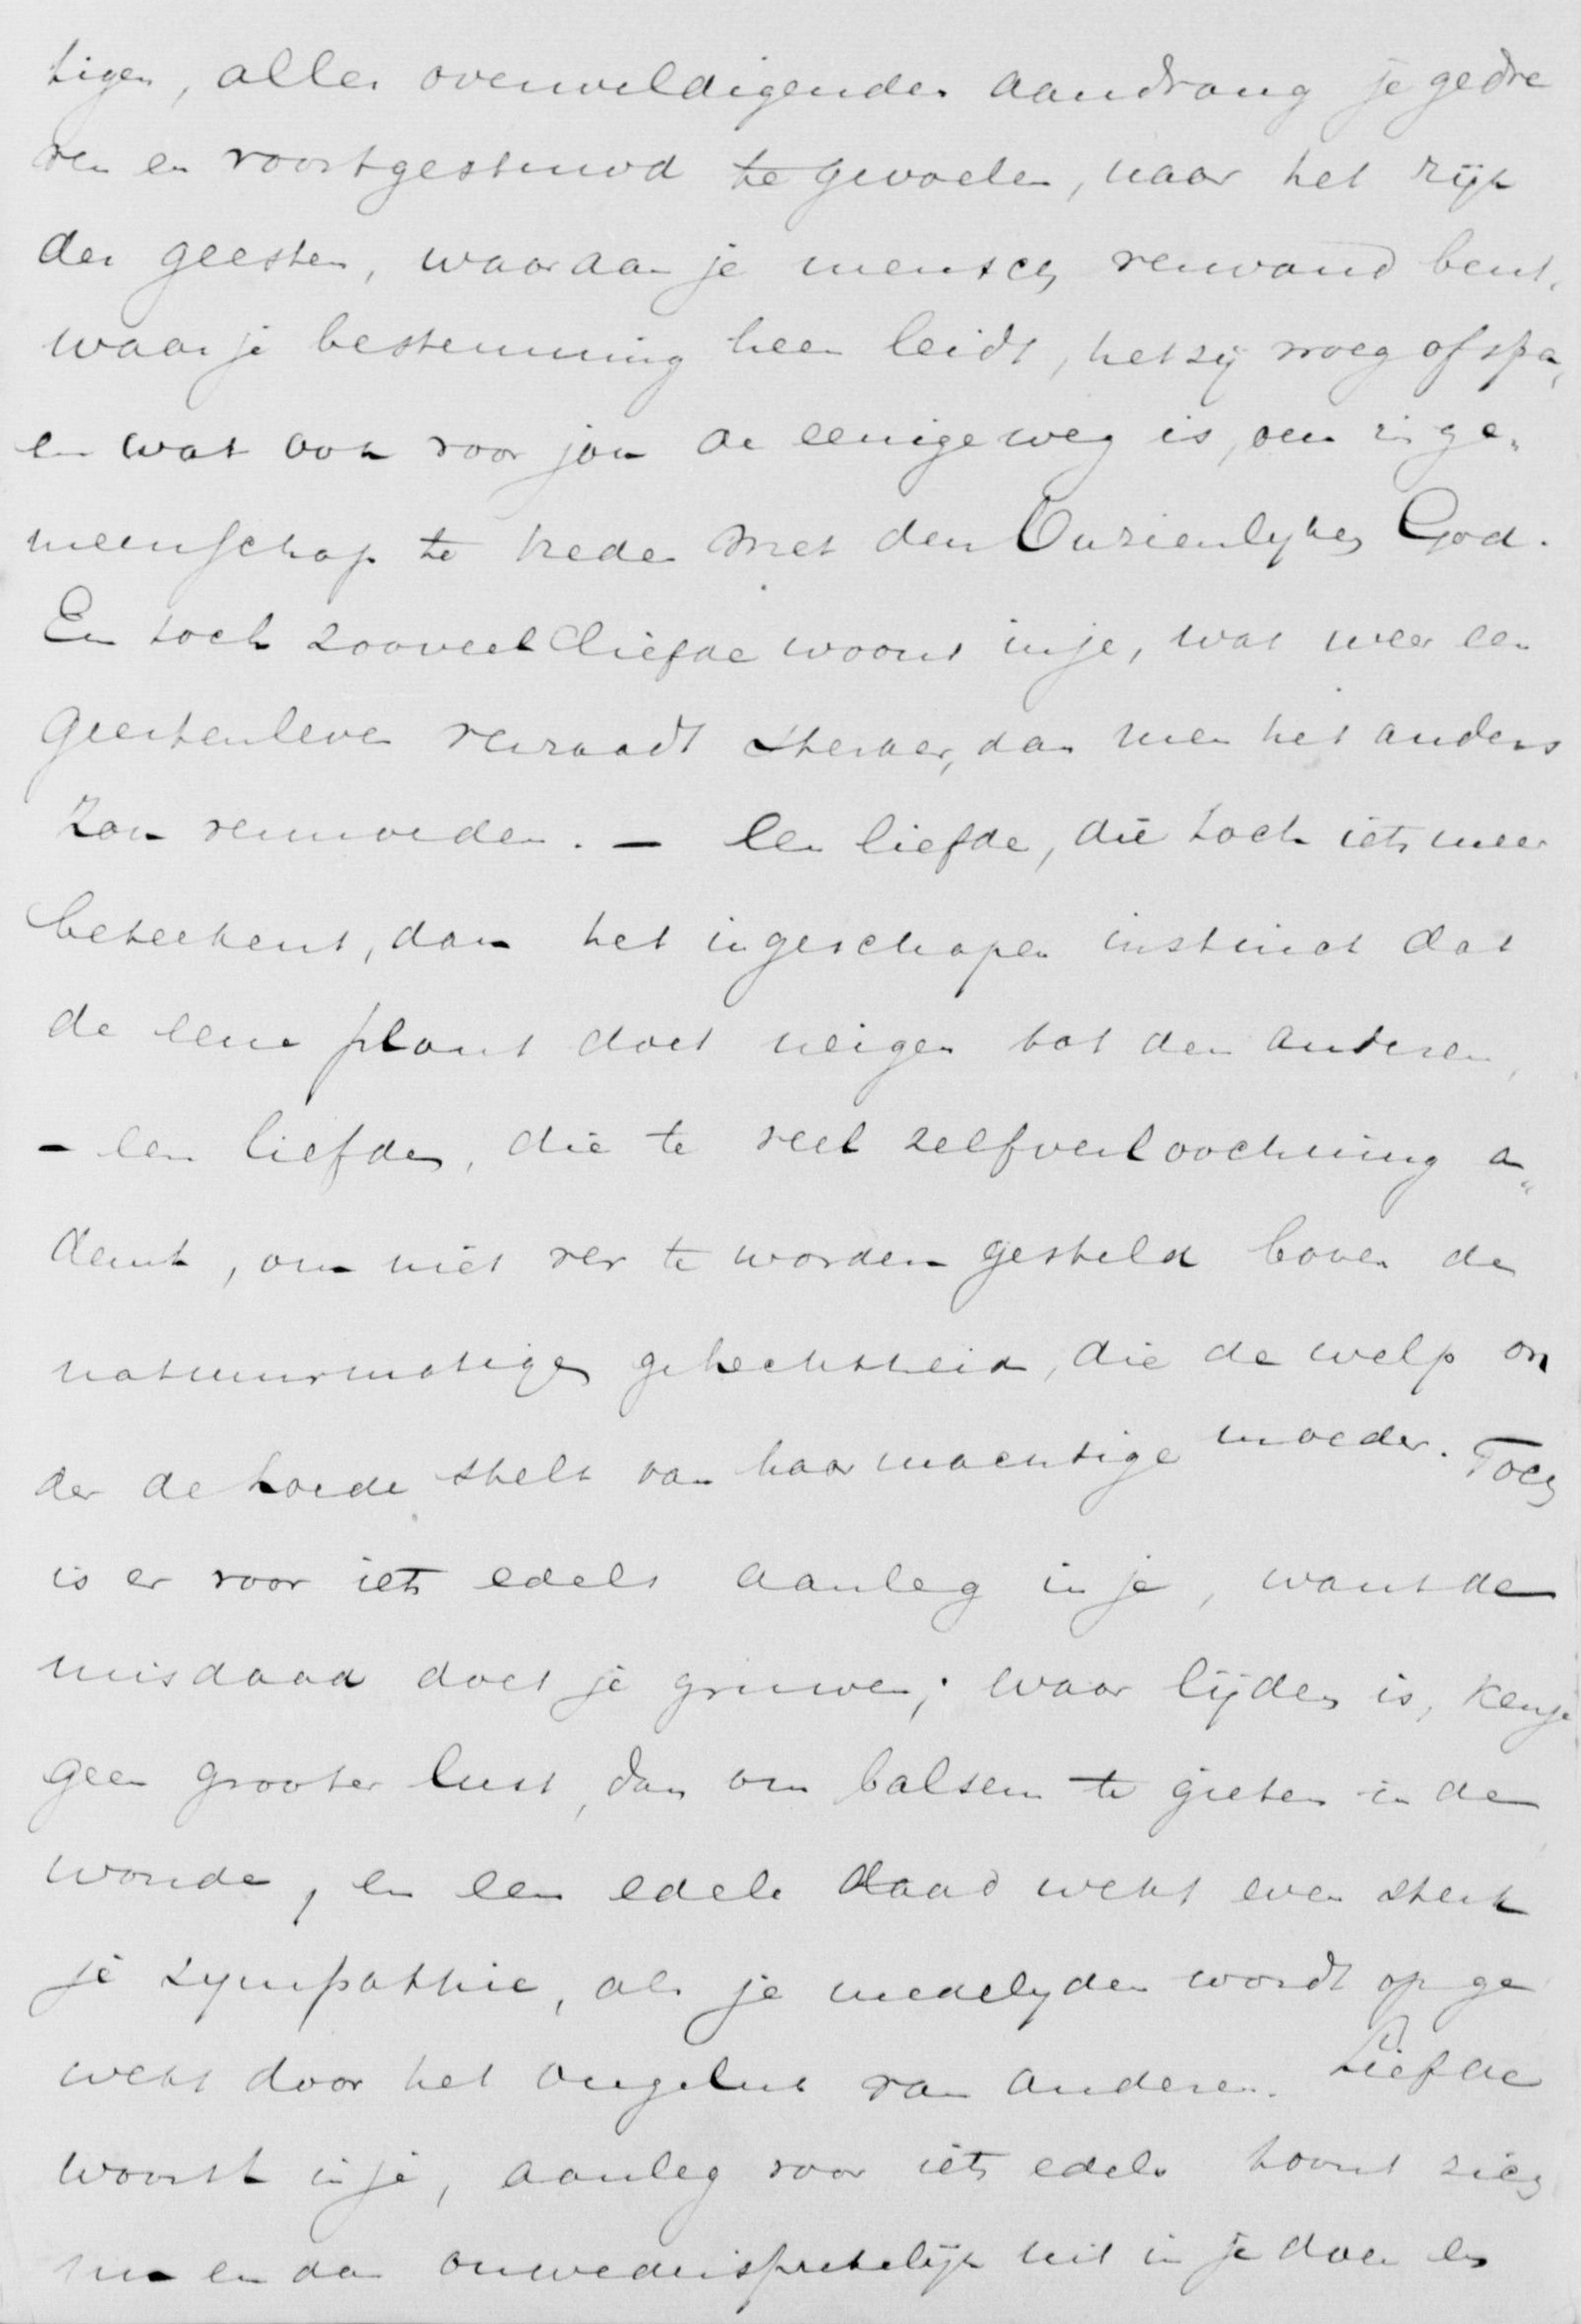 tigen, alles overweldigenden aandrang je gedre
ven en voortgestuwd te gevoelen, naar het rijk
der geesten, waaraan je mensch verwand bent,
waar je bestemming heen leidt, hetzij vroeg of spa,
en wat ook voor jou de eenige weg is, om in ge„
meenschap te treden met den Onzienlyken God.
En toch zooveel liefde woont in je, wat weer een
geestenleven verraadt sterker, dan men het anders
zou vermoeden. — een liefde, die toch iets meer
beteekent, dan het ingeschapen instinct dat
de eene plant doet neigen tot den anderen,
– een liefde, die te veel zelfverloochening a„
demt, om niet ver te worden gesteld boven de
natuurmatige gehechtheid, die de welp on
der de hoede stelt van haar machtige moeder. Toch
is er voor iets edels aanleg in je, want de
misdaad doet je gruwen; waar lijden is, ken je
geen grooter lust, dan om balsem te gieten in de
wonde, en een edele daad wekt even sterk
je sympathie, als je medelyden wordt opge
wekt door het ongeluk van anderen. Liefde
woont in je, aanleg voor iets edels toont zich
nu en dan onwedersprekelijk uit in je doen en